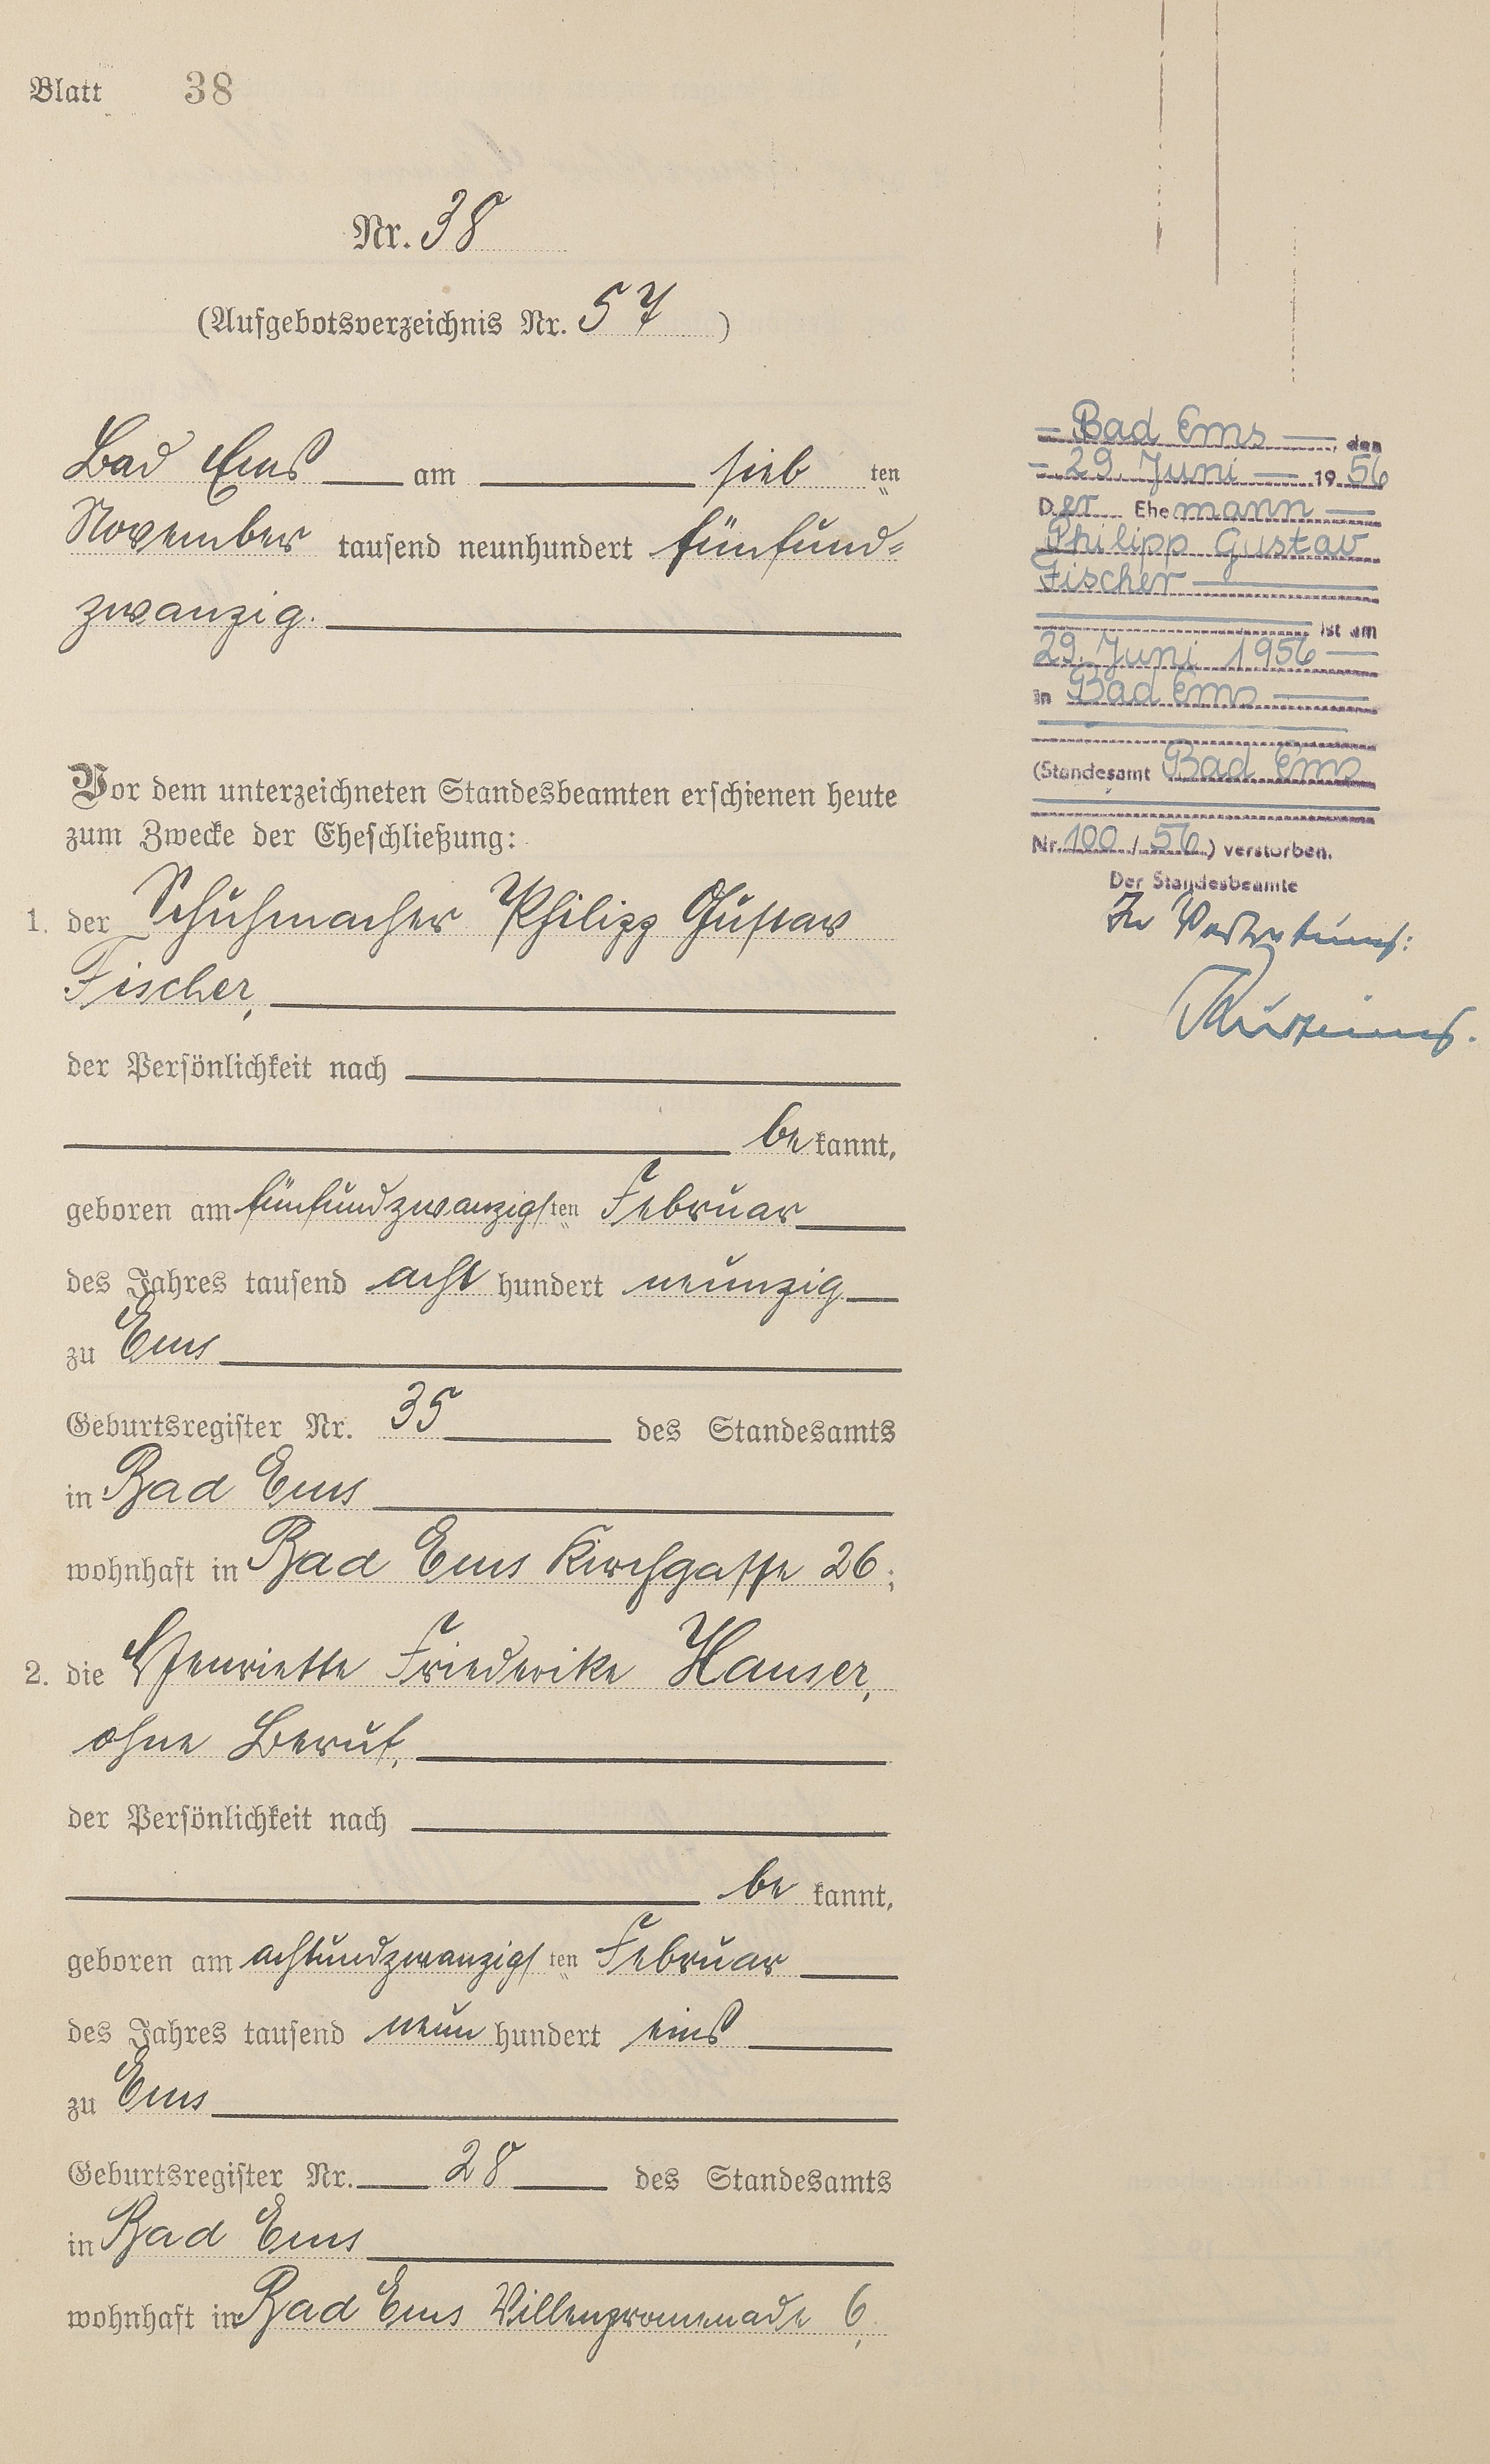 Blatt 38
Nr. 38
(Aufgebotsverzeichnis Nr. 57)
Bad Ems am sieb ten
November tausend neunhundert fünfund=
zwanzig.
Vor dem unterzeichneten Standesbeamten erschienen heute
zum Zwecke der Eheschließung:
1. der Schuhmacher Philipp Gustav
Fischer,
der Persönlichkeit nach
be kannt,
geboren am fünfundzwanzigsten Februar
des Jahres tausend acht hundert neunzig
zu Ems
Geburtsregister Nr. 35 des Standesamts
in Bad Ems
wohnhaft in Bad Ems Kirchgasse 26;
2. die Henriette Friederike Hauser,
ohne Beruf,
der Persönlichkeit nach
be kannt,
geboren am achtundzwanzigsten Februar
des Jahres tausend neun hundert eins
zu Ems
Geburtsregister Nr. 28 des Standesamts
in Bad Ems
wohnhaft in Bad Ems Villenpromenade 6,
Bad Ems, den
29. Juni 1956
Der Ehemann
Philipp Gustav
Fischer
ist am
29. Juni 1956
in Bad Ems
(Standesamt Bad Ems
Nr. 100/56) verstorben.
Der Standesbeamte
In Vertretung: